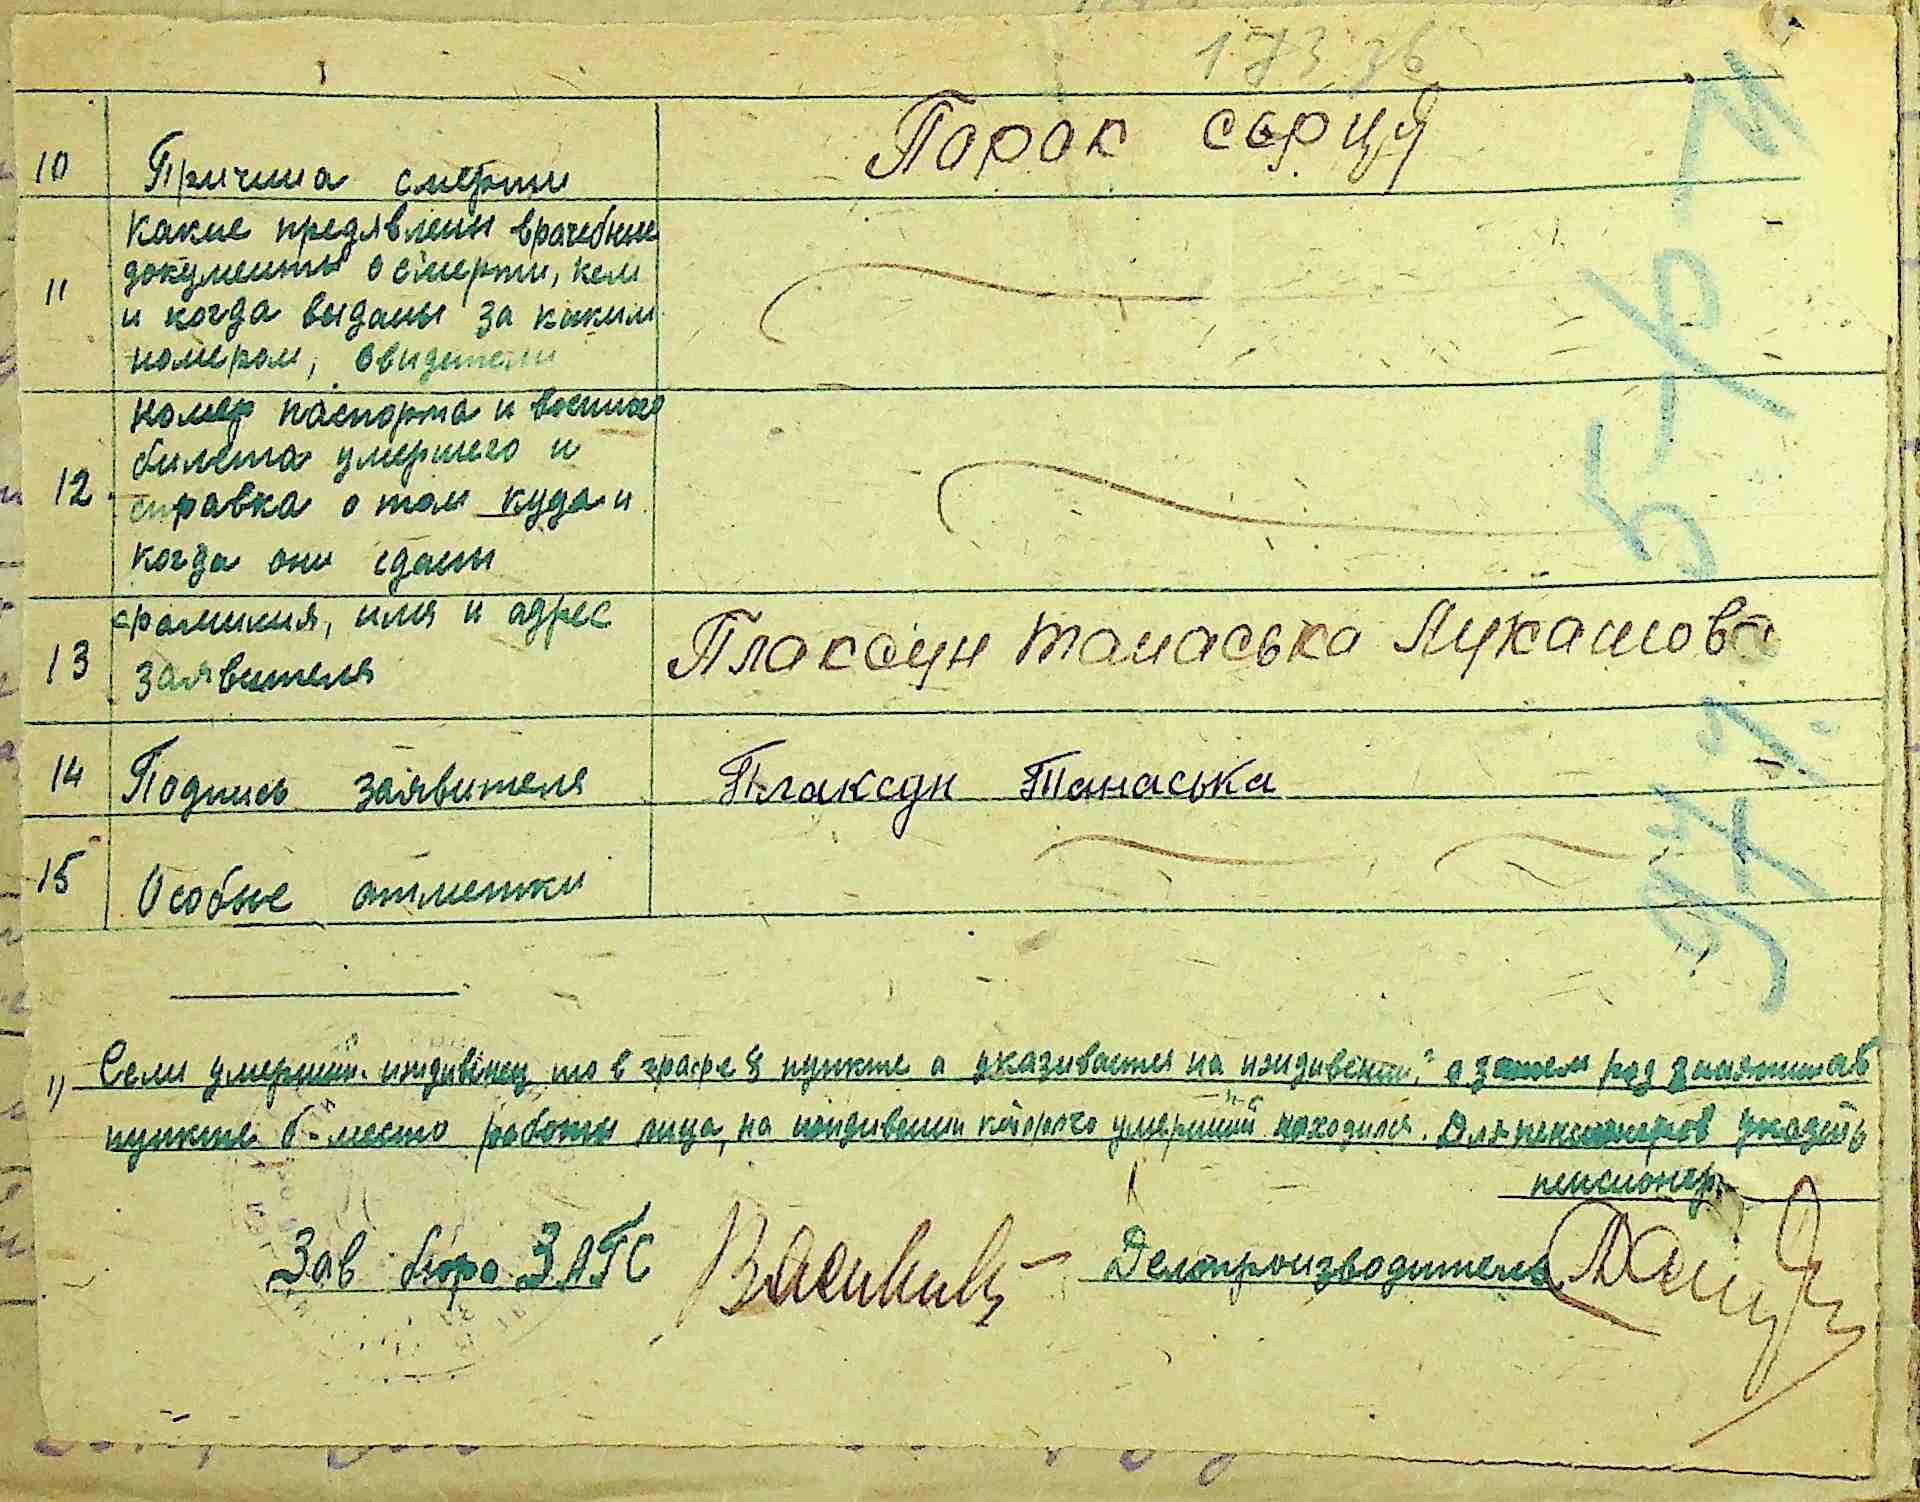 10 Причина смерти Порок серця
11 Какие предявлены врачебные
документы о смерти, кем
и когда выданы за каким
номером, свидетели
12 номер паспорта и военного
билета умершего и
справка о том куда и
когда они сданы
13 фамилия, имя и адрес
заявителя Плаксун Танаська Лукашова
14 Подпись заявителя Плаксун Танаська
15 Особые отметки
1) Если умерший иждивенец то в графе 8 пункте а указывается на иждивении, а затем род занятий в
пункте б-место работы лица, на иждивении которого умерший находился. Для пенсионеров указать
пенсионер
Зав бюро ЗАГС Делопроизводитель